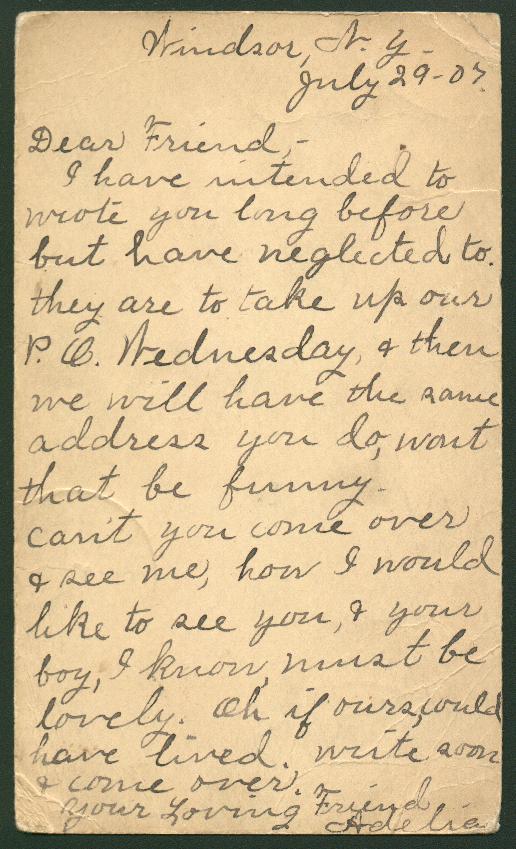 Windsor, N. Y.
July 29-07.
Dear Friend,-
I have intended to
wrote you long before
but have neglected to.
they are to take up our
P. O. Wednesday, & then
we will have the same
address you do, wont
that be funny.
can't you come over
& see me, how I would
like to see you, & your
boy, I know, must be
lovely. Oh if ours, could
have lived. write soon
& come over.
your Loving Friend
Adelia